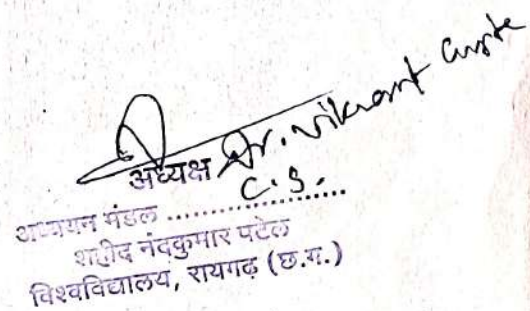 अध्यक्ष Dr. Vikrant Gupta
अध्ययन मंडल .......C.S.........
शहीद नंदकुमार पटेल
विश्वविद्यालय, रायगढ़ (छ.ग.)